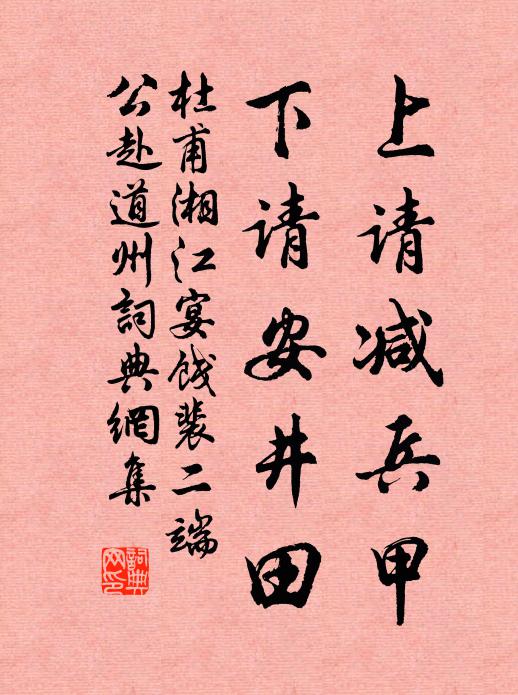 上请减兵甲
下请安井田
杜甫湘江宴餞裴二端
公赴道州詞典網集
詞典
网印